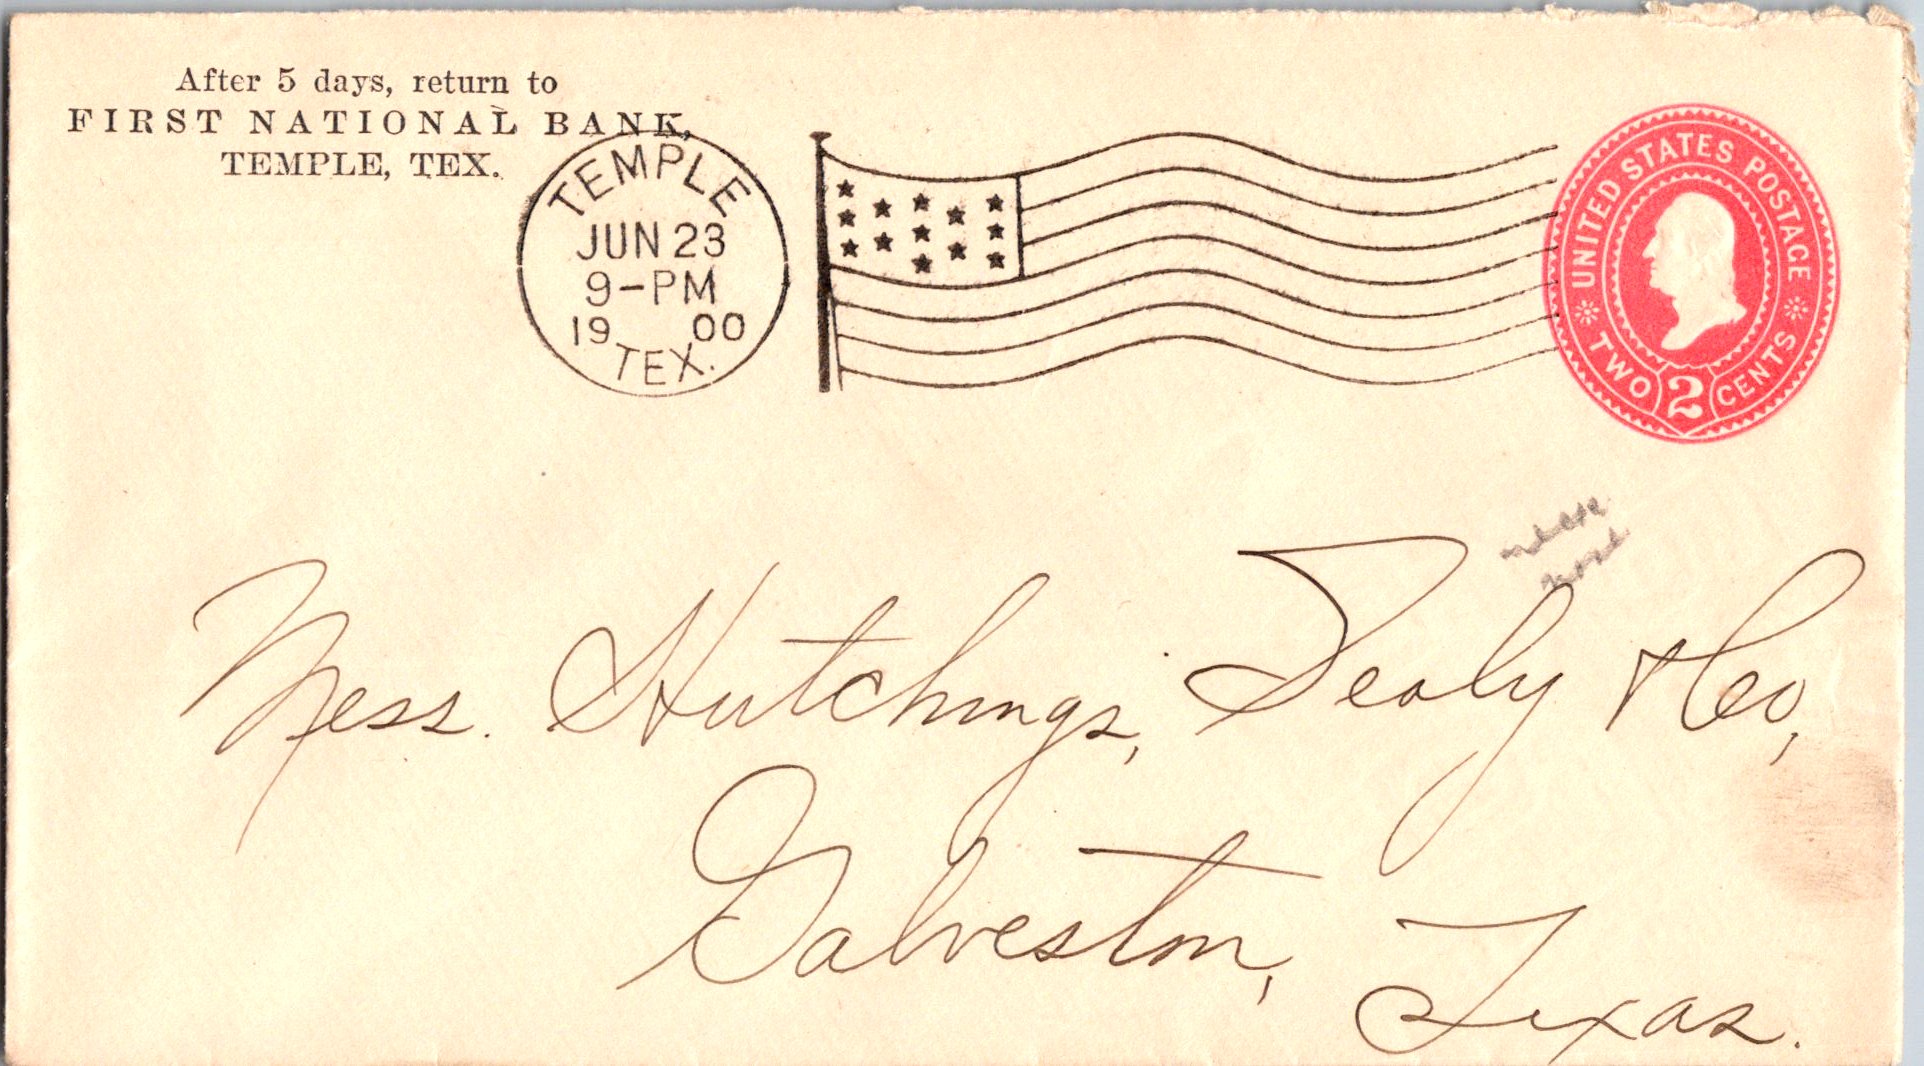 After 5 days, return to
FIRST NATIONAL BANK,
TEMPLE, TEX.
TEMPLE
JUN 23
9-PM
19 00
TEX.
UNITED STATES POSTAGE
TWO 2 CENTS
Mess. Hutchings, Sealy & Co,
Galveston, Texas.